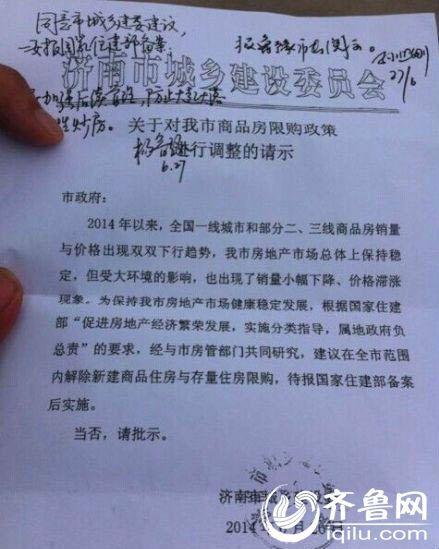 同意市城乡建委建议，
济南市城乡建设委员会
关于对我市商品房限购政策
进行调整的请示
6.27
27/6
市政府：
2014年以来，全国一线城市和部分二、三线商品房销量
与价格出现双双下行趋势，我市房地产市场总体上保持稳
定，但受大环境的影响，也出现了销量小幅下降、价格滞涨
现象。为保持我市房地产市场健康稳定发展，根据国家住建
部“促进房地产经济繁荣发展，实施分类指导，属地政府负
总责”的要求，经与市房管部门共同研究，建议在全市范围
内解除新建商品住房与存量住房限购，待报国家住建部备案
后实施。
当否，请批示。
济南市城
2014年6月26日
齐鲁网
iqilu.com